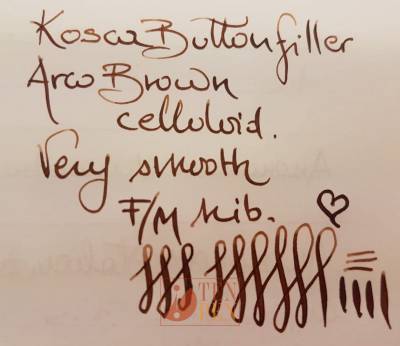 Kosca Buttonfiller
Arco Brown
celloloid.
Very smooth
F/M Nib.
TEN
PEN